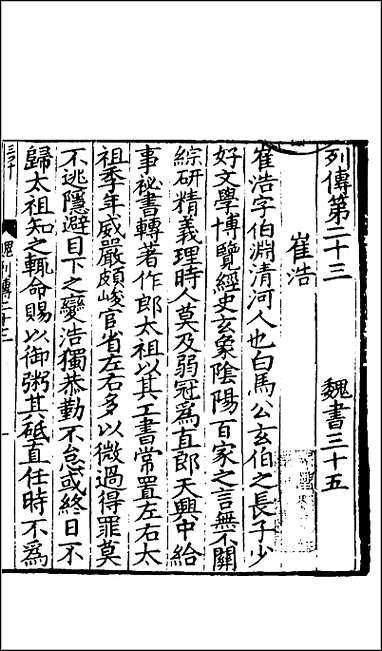 列傳第二十三　魏書三十五
崔浩
崔浩字伯淵清河人也白馬公玄伯之長子少
好文學博覽經史玄象陰陽百家之言無不關
綜研精義理時人莫及弱冠爲直郎天興中給
事祕書轉著作郎太祖以其工書常置左右太
祖季年威嚴頗峻官省左右多以微過得罪莫
不逃隱避目下之變浩獨恭勤不怠或終日不
歸太祖知之輒命賜以御粥其砥直任時不爲
魏列傳二十三